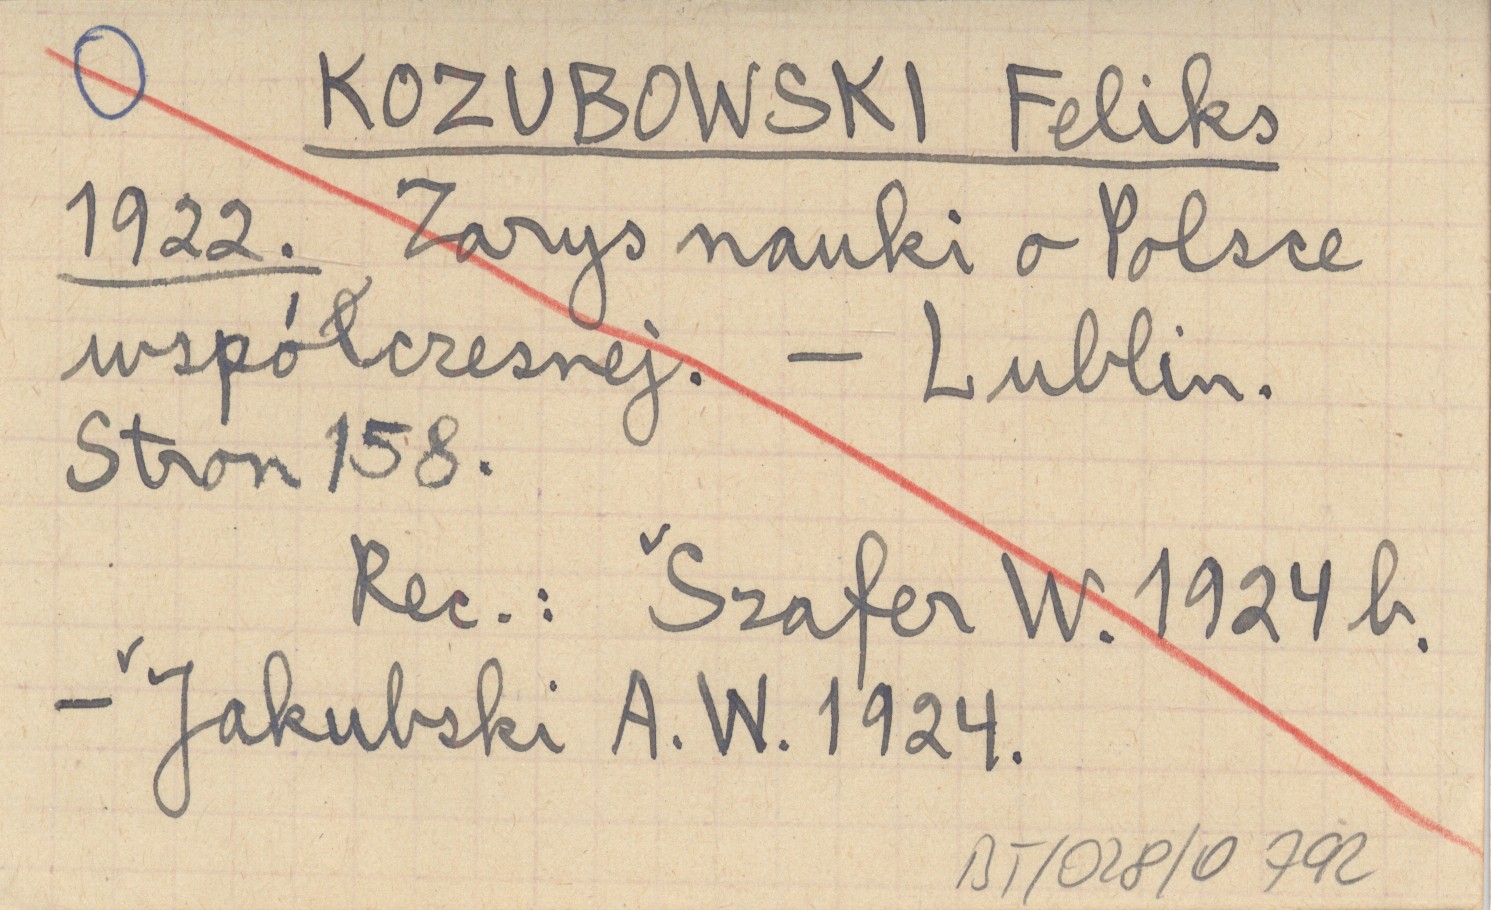 KOZUBOWSKI Feliks
1922. Zarys nauki o Polsce
współczesnej. – Lublin.
Stron 158.
Rec.: ˇSzafer W. 1924 b.
– ˇJakubski A. W. 1924.
BT/028/0 792